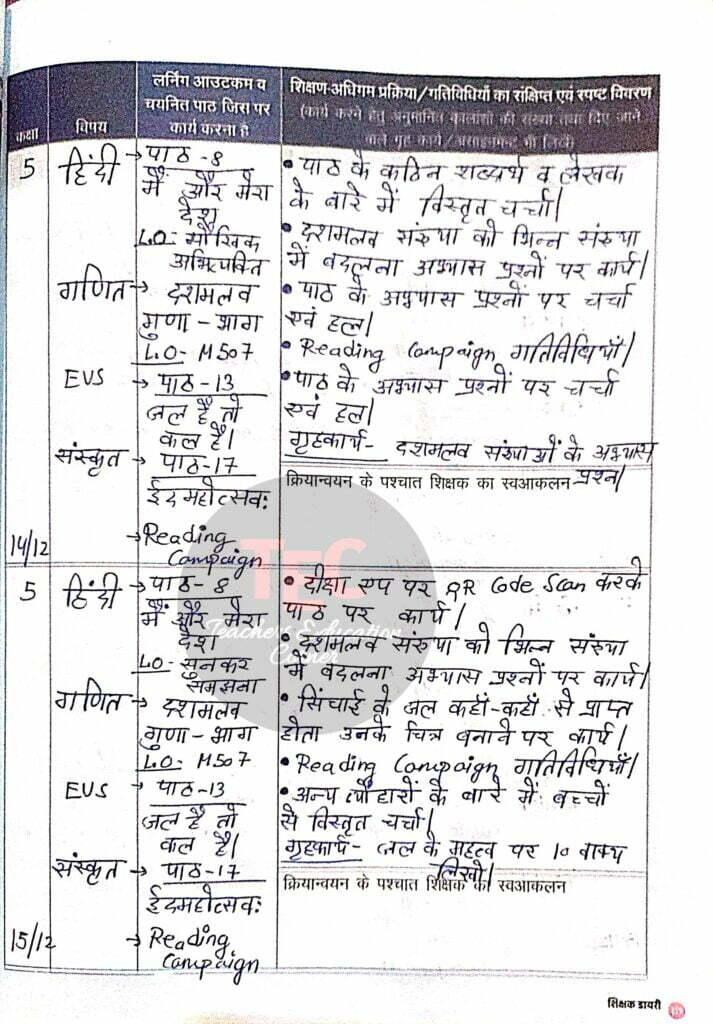 कक्षा
विषय
लर्निंग आउटकम व
चयनित पाठ जिस पर
कार्य करना है
शिक्षण-अधिगम प्रक्रिया/गतिविधियों का संक्षिप्त एवं स्पष्ट विवरण
(कार्य करने हेतु अनुमानित कालांशों की संख्या तथा दिए जाने
वाले गृह कार्य/असाइनमेन्ट भी लिखें)
5
हिंदी
→ पाठ - 8
मैं और मेरा
देश
L.O- मौखिक
अभिव्यक्ति
गणित
→ दशमलव
गुणा - भाग
L.O- M507
EVS
→ पाठ - 13
जल है तो
कल है।
संस्कृत
→ पाठ - 17
ईदमहोत्सवः
→ Reading
Campaign
14/12
• पाठ के कठिन शब्दार्थ व लेखक
के बारे में विस्तृत चर्चा।
• दशमलव संख्या को भिन्न संख्या
में बदलना अभ्यास प्रश्नों पर कार्य।
• पाठ के अभ्यास प्रश्नों पर चर्चा
एवं हल।
• Reading Campaign गतिविधियाँ।
• पाठ के अभ्यास प्रश्नों पर चर्चा
एवं हल।
गृहकार्य- दशमलव संख्याओं के अभ्यास
प्रश्न।
क्रियान्वयन के पश्चात शिक्षक का स्वआकलन
5
हिंदी
→ पाठ - 8
मैं और मेरा
देश
LO- सुनकर
समझना
गणित
→ दशमलव
गुणा - भाग
L.O- M507
EVS
→ पाठ - 13
जल है तो
कल है।
संस्कृत
→ पाठ - 17
ईदमहोत्सवः
→ Reading
Campaign
15/12
• दीक्षा एप पर QR Code Scan करके
पाठ पर कार्य।
• दशमलव संख्या को भिन्न संख्या
में बदलना अभ्यास प्रश्नों पर कार्य।
• सिंचाई के जल कहाँ-कहाँ से प्राप्त
होता उनके चित्र बनाने पर कार्य।
• Reading Campaign गतिविधियाँ।
• अन्य त्यौहारों के बारे में बच्चों
से विस्तृत चर्चा।
गृहकार्य- जल के महत्व पर 10 वाक्य
लिखो।
क्रियान्वयन के पश्चात शिक्षक का स्वआकलन
TEC
Teachers Education
Corner
शिक्षक डायरी